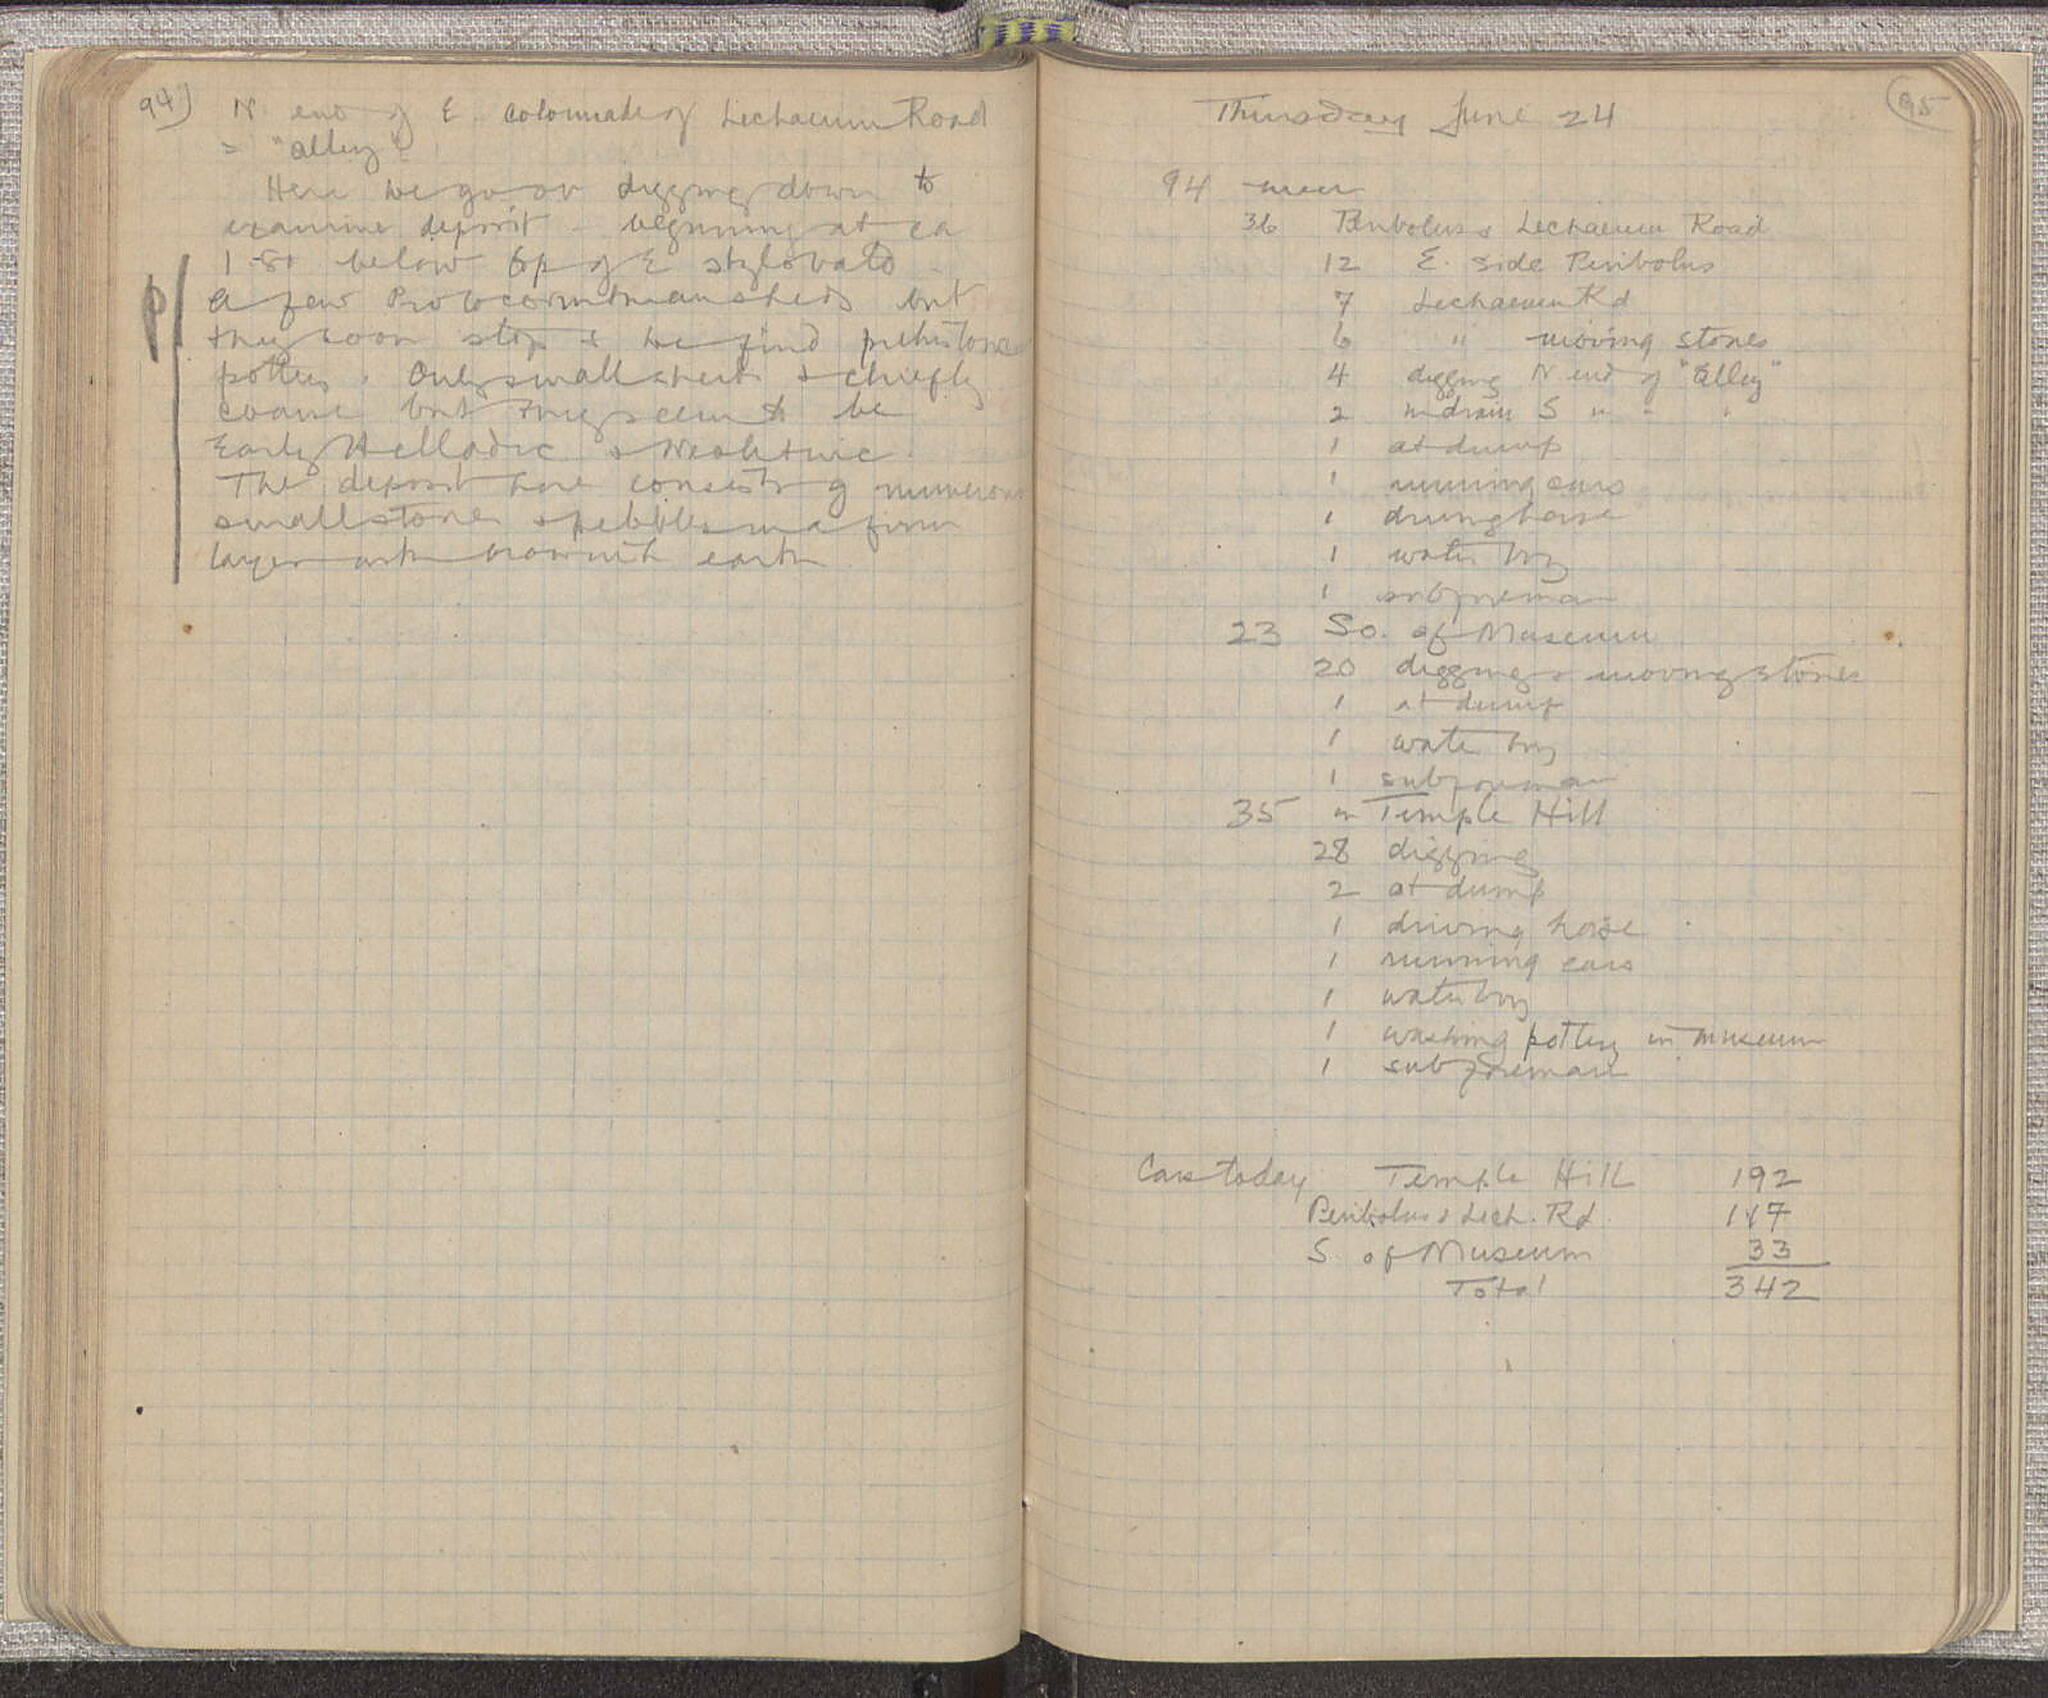 94)
N. end of E. colonnade of Lechaeum Road
= "alley"
Here we go on digging down to
examine deposit - beginning at ca
1.80 below top of E stylobate.
A few Protocorinthian sherds but
they soon stop & we find prehistoric
pottery. Only small sherds & chiefly
coarse but they seem to be
Early Helladic & Neolithic.
The deposit here consists of numerous
small stones & pebbles in a firm
layer with brownish earth
p
95
Thursday June 24
94 men
36 Peribolus & Lechaeum Road
12 E. side Peribolus
7 Lechaeum Rd
6 " moving stones
4 digging N end of "alley"
2 in drain S " " "
1 at dump
1 running cars
1 driving horse
1 water boy
1 subforeman
23 So. of Museum
20 digging & moving stones
1 at dump
1 water boy
1 subforeman
35 on Temple Hill
28 digging
2 at dump
1 driving horse
1 running cars
1 water boy
1 washing pottery in museum
1 subforeman
Cars today Temple Hill 192
Peribolus & Lech. Rd. 117
S. of Museum 33
Total 342